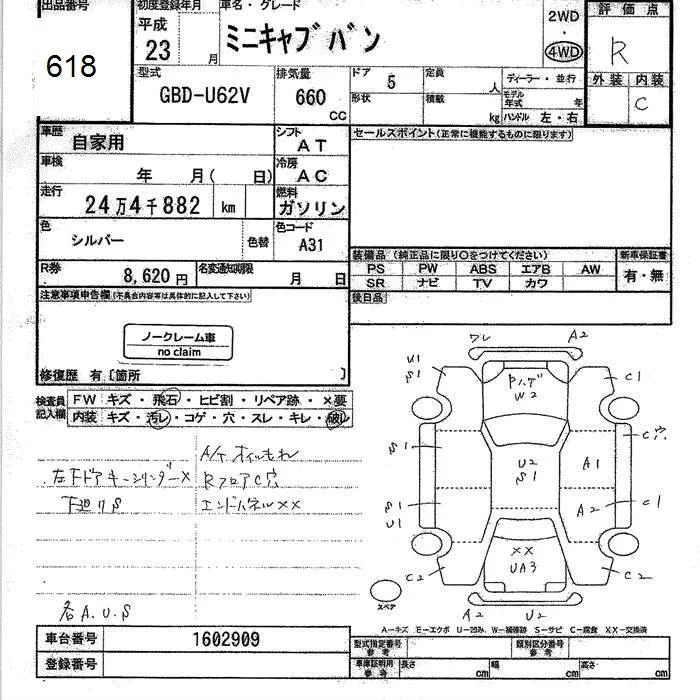 出品番号
618
初度登録年月
平成
23 月
車名・グレード
ミニキャブバン
2WD
・
4WD
評価点
R
外装 内装
C
型式
GBD-U62V
排気量
660
CC
ドア
5
定員
人
ディーラー・並行
形状
積載
kg
モデル年式 年
ハンドル 左・右
車歴
自家用
シフト
AT
セールスポイント(正常に機能するものに限ります)
車検
年 月( 日)
冷房
AC
走行
24万4千882 km
燃料
ガソリン
色
シルバー
色替
色コード
A31
R券
8,620円
名変通知期限
月 日
装備品 (純正品に限り○をつけてください)
PS PW ABS エアB AW
SR ナビ TV カワ
新車保証書
有・無
後日品
注意事項申告欄(不具合内容等は具体的に記入して下さい)
ノークレーム車
no claim
修復歴 有〔箇所 〕
検査員記入欄
FW キズ・飛石・ヒビ割・リペア跡・×要
内装 キズ・汚レ・コゲ・穴・スレ・キレ・破レ
A/T オイルもれ
左FドアキーシリンダーX
RフロアC穴
下廻りS
エンドパネルXX
各A.U.S
ワレ
A2
U1
S1
W2
C1
C穴
S1
U2
S1
A1
S1
U1
A2
C1
XX
UA3
C2
C2
スペア
A2
U2
A－キズ E－エクボ U－凹み W－補修跡 S－サビ C－腐食 XX－交換済
車台番号
1602909
登録番号
型式指定番号
参考
類別区分番号
参考
車庫証明用
参考
長さ cm
幅 cm
高さ cm